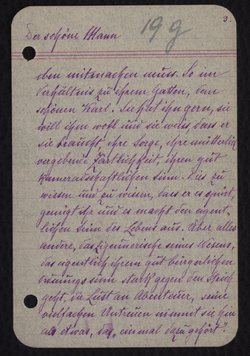 3.
Der schöne Mann
19 g
eben mitmachen muss. So im
Verhältnis zu ihrem Gatten, dem
schönen Karl. Sie hat ihn gern, sie
will ihm wohl und sie weiss, dass er
sie braucht, ihre Sorge, ihre mütterlich
vergebende Zärtlichkeit, ihren gut
kameradschaftlichen Sinn. Dies zu
wissen und zu wissen, dass er es spürt,
genügt ihr und es macht den eigent-
lichen Sinn des Lebens aus. Aber alles
andere, das Zigeunerische seines Wesens,
das eigentlich ihrem gut bürgerlichen
Ordnungssinn stark gegen den Strich
geht, die Lust an Abenteuer, seine
vielfachen Untreuen nimmt sie hin
als etwas, das einmal dazugehört."